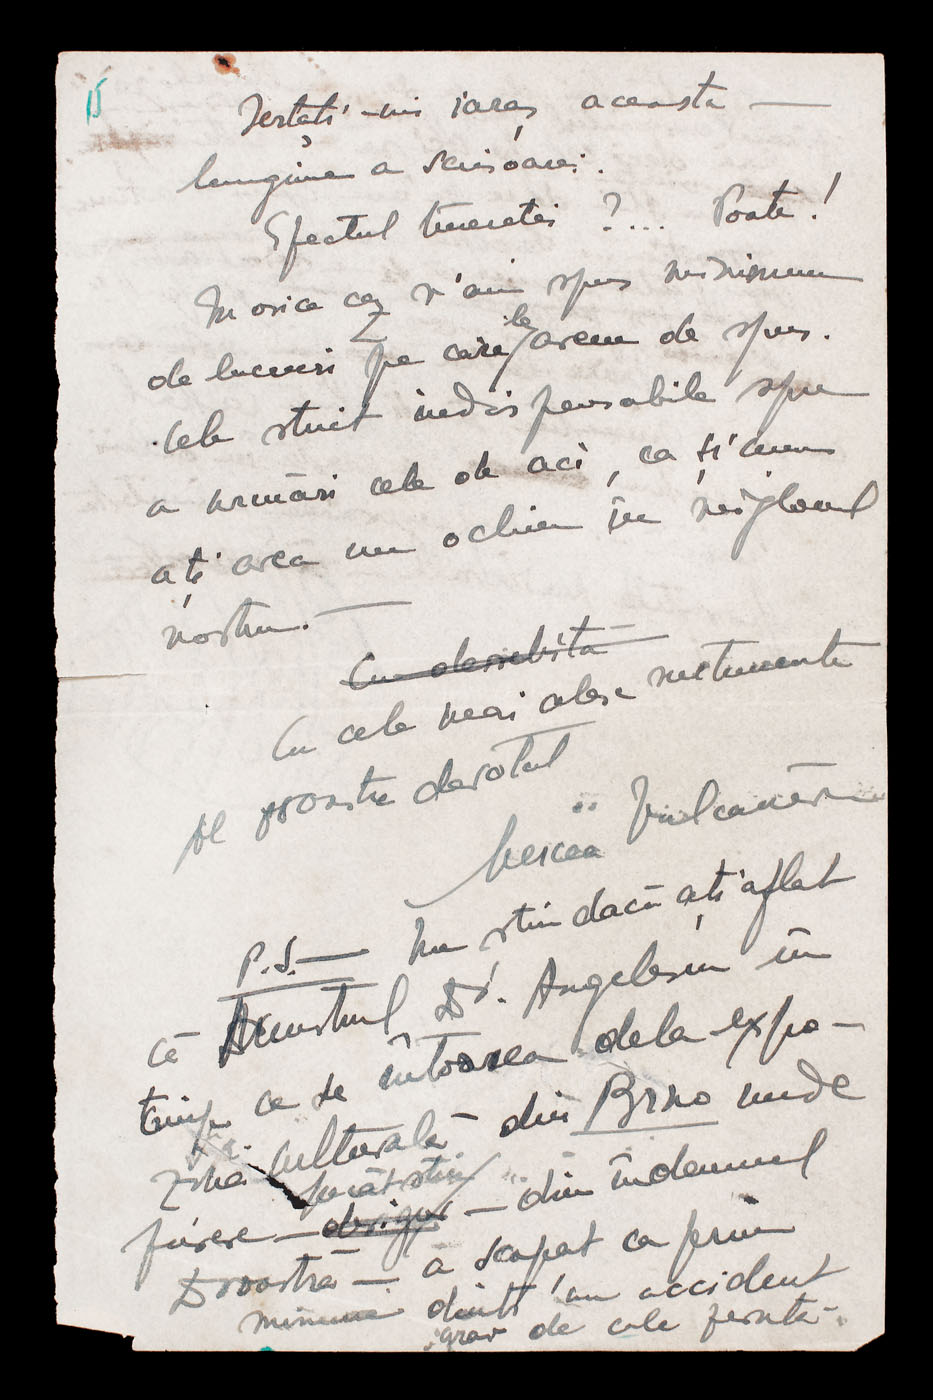 Iertati'-mi iaraș aceasta —
lungime a scrisoarei.
Efectul tineretei ?... Poate!
In orice caz n'am spus minimum
de lucruri pe care le avem de spus.
Cele strict indispensabile spre
a urmări cele de aci, ca și cum
ați avea un ochiu în mijlocul
nostru. —
Cu deosebita
Cu cele mai alese sentimente
Al Dvoastre devotat
Mircea Vulcănescu
P.S. — Nu stiu dacă ați aflat
că Ministrul Dr. Angelescu în
timp ce se întorcea dela expo-
ziția culturală din Brno unde
fusese — pecât stiu — din îndemnul
Dvoastră — a scapat ca prin
minune dintr'un accident
grav de cale ferată.